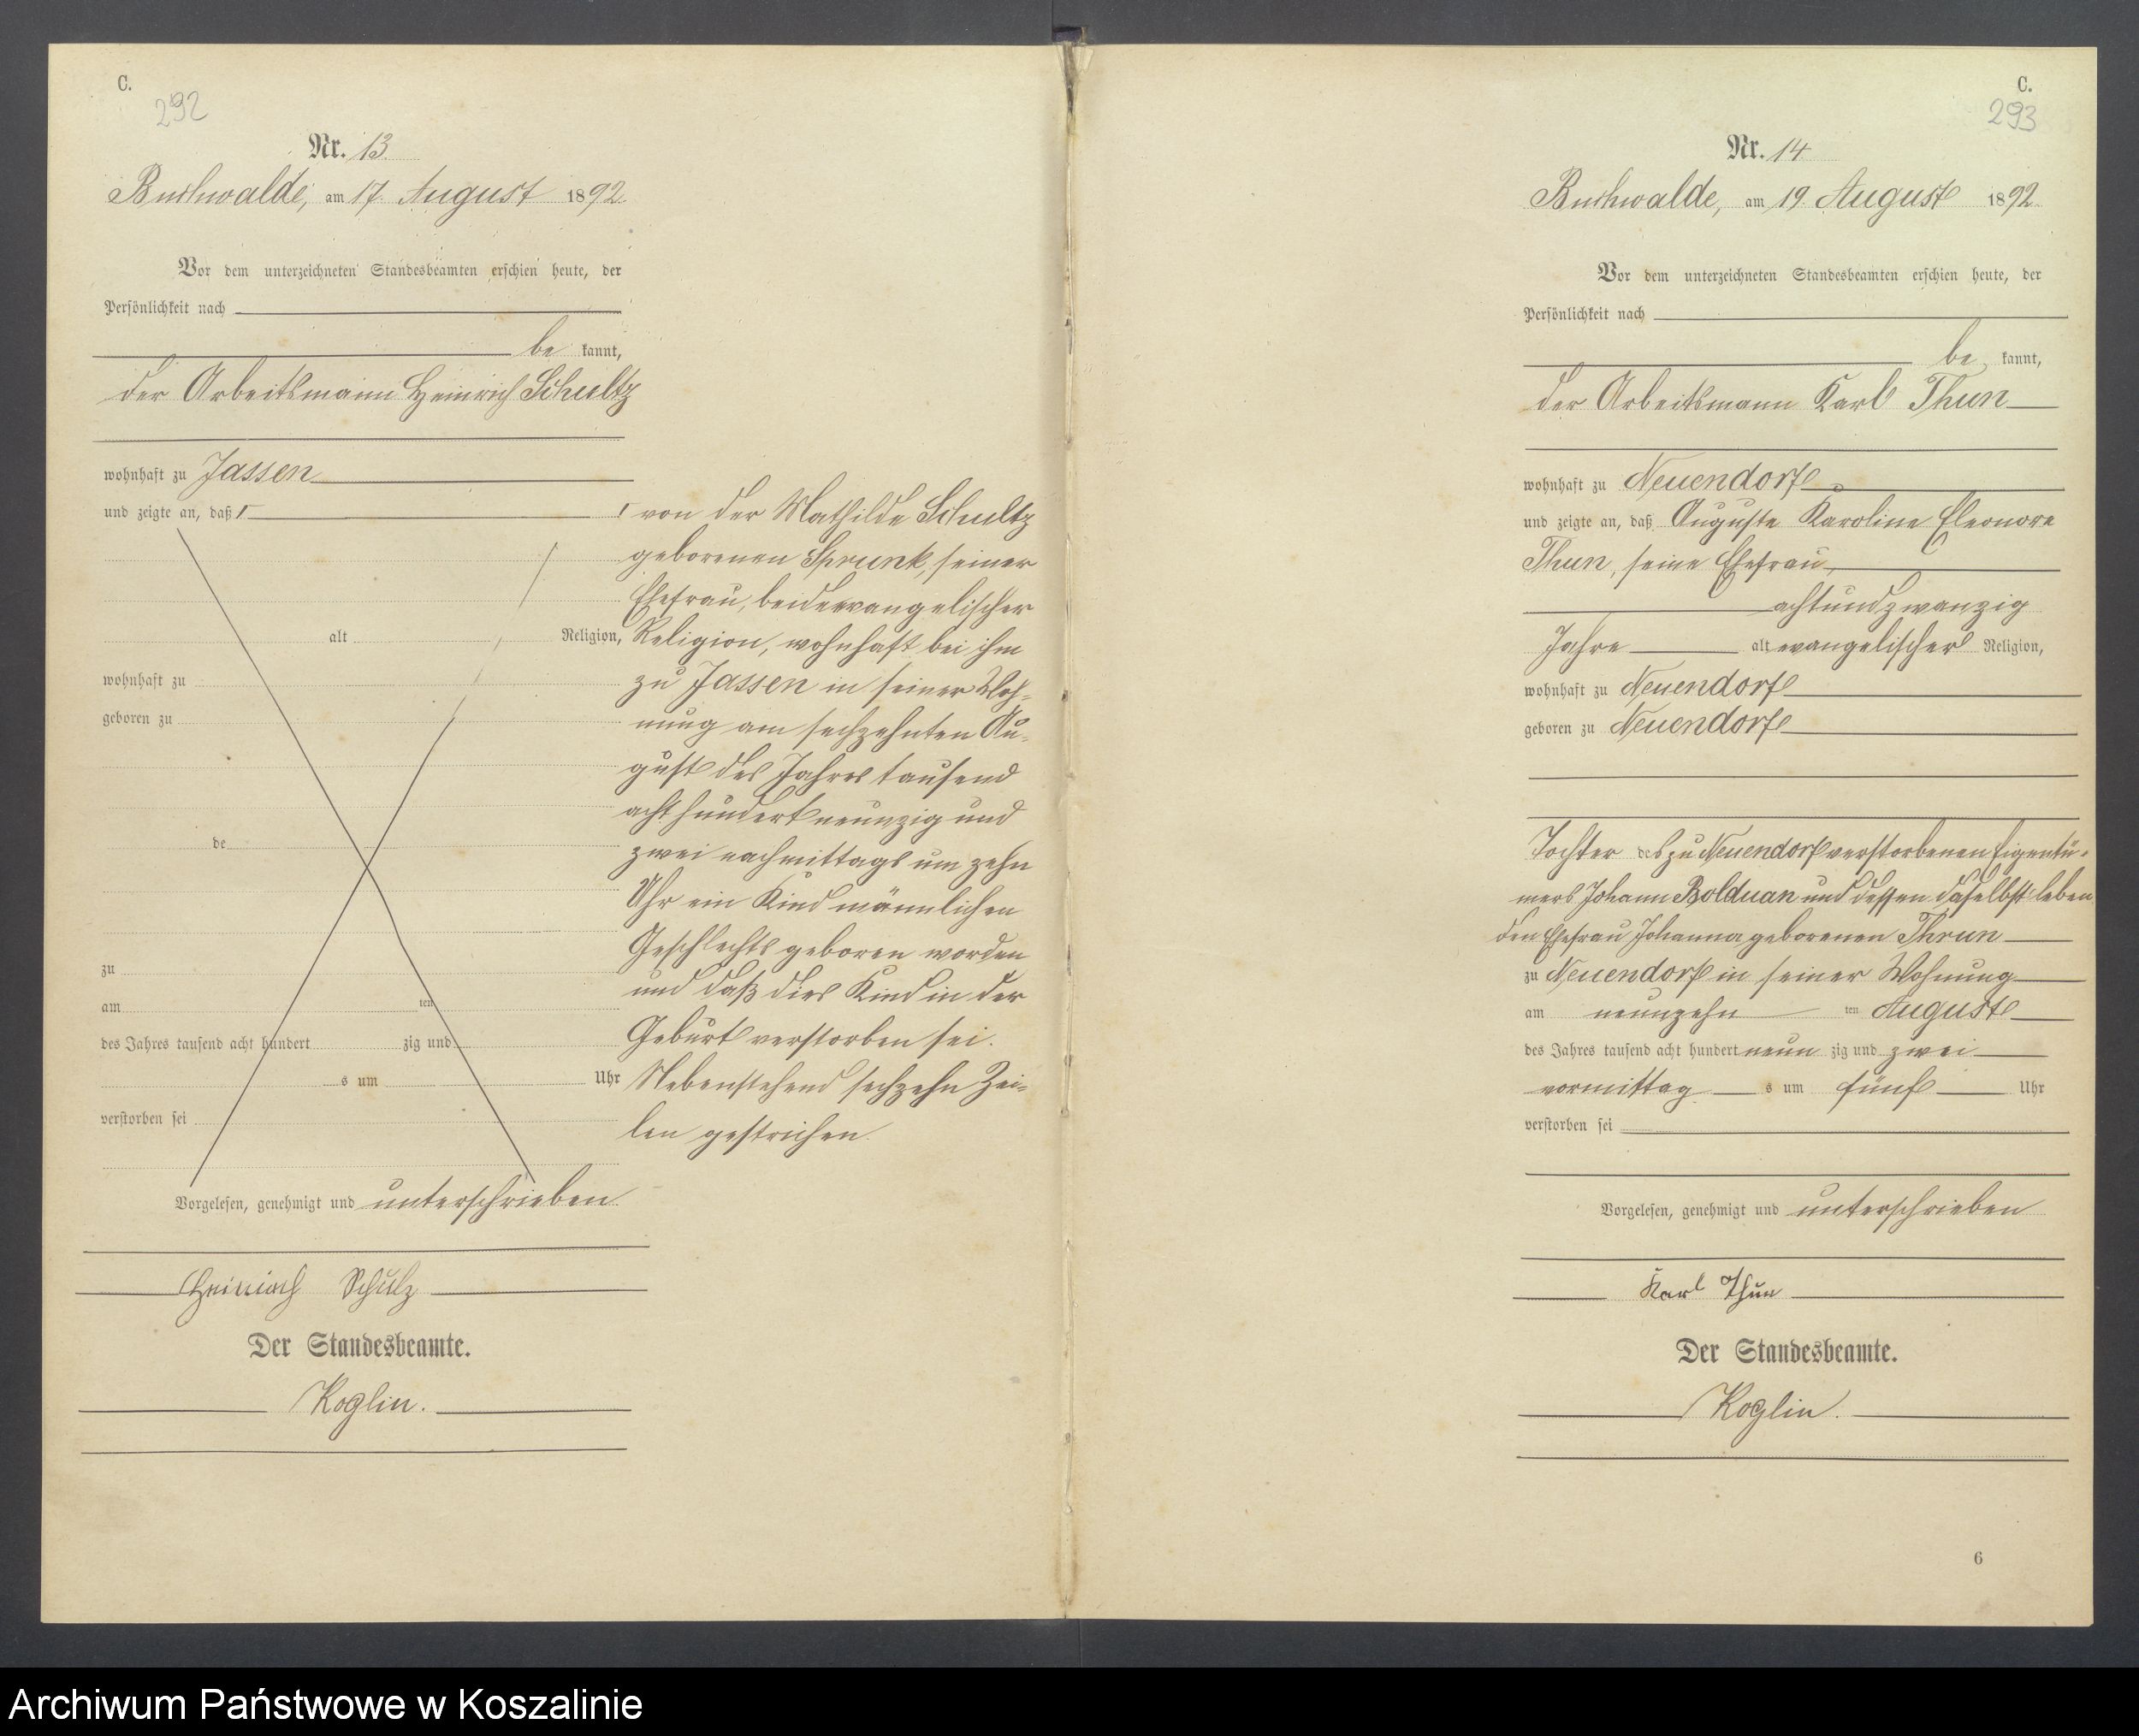 C.
292
Nr. 13.
Buchwalde, am 17. August 1892.
Vor dem unterzeichneten Standesbeamten erschien heute, der
Persönlichkeit nach
be kannt,
der Arbeitsmann Heinrich Schultz
wohnhaft zu Jassen
und zeigte an, daß Γ
alt Religion,
wohnhaft zu
geboren zu
de
zu
am ten
des Jahres tausend acht hundert zig und
s um Uhr
verstorben sei
Γ von der Mathilde Schultz
geborenen Sprunk, seiner
Ehefrau, beide evangelischer
Religion, wohnhaft bei ihm
zu Jassen in seiner Woh-
nung am sechzehnten Au-
gust des Jahres tausend
acht hundert neunzig und
zwei nachmittags um zehn
Uhr ein Kind männlichen
Geschlechts geboren worden
und daß dies Kind in der
Geburt verstorben sei.
Nebenstehend sechzehn Zei-
len gestrichen.
Vorgelesen, genehmigt und unterschrieben.
Heinrich Schulz
Der Standesbeamte.
Koglin.
C.
293
Nr. 14
Buchwalde, am 19. August 1892.
Vor dem unterzeichneten Standesbeamten erschien heute, der
Persönlichkeit nach
be kannt,
der Arbeitsmann Karl Thun
wohnhaft zu Neuendorf
und zeigte an, daß Auguste Karoline Eleonore
Thun, seine Ehefrau,
achtundzwanzig
Jahre alt evangelischer Religion,
wohnhaft zu Neuendorf
geboren zu Neuendorf
Tochter des zu Neuendorf verstorbenen Eigentü-
mers Johann Bolduan und dessen daselbst leben
den Ehefrau Johanna geborenen Thrun
zu Neuendorf in seiner Wohnung
am neunzehn ten August
des Jahres tausend acht hundert neun zig und zwei
vormittag s um fünf Uhr
verstorben sei
Vorgelesen, genehmigt und unterschrieben
Karl Thun
Der Standesbeamte.
Koglin.
6
Archiwum Państwowe w Koszalinie